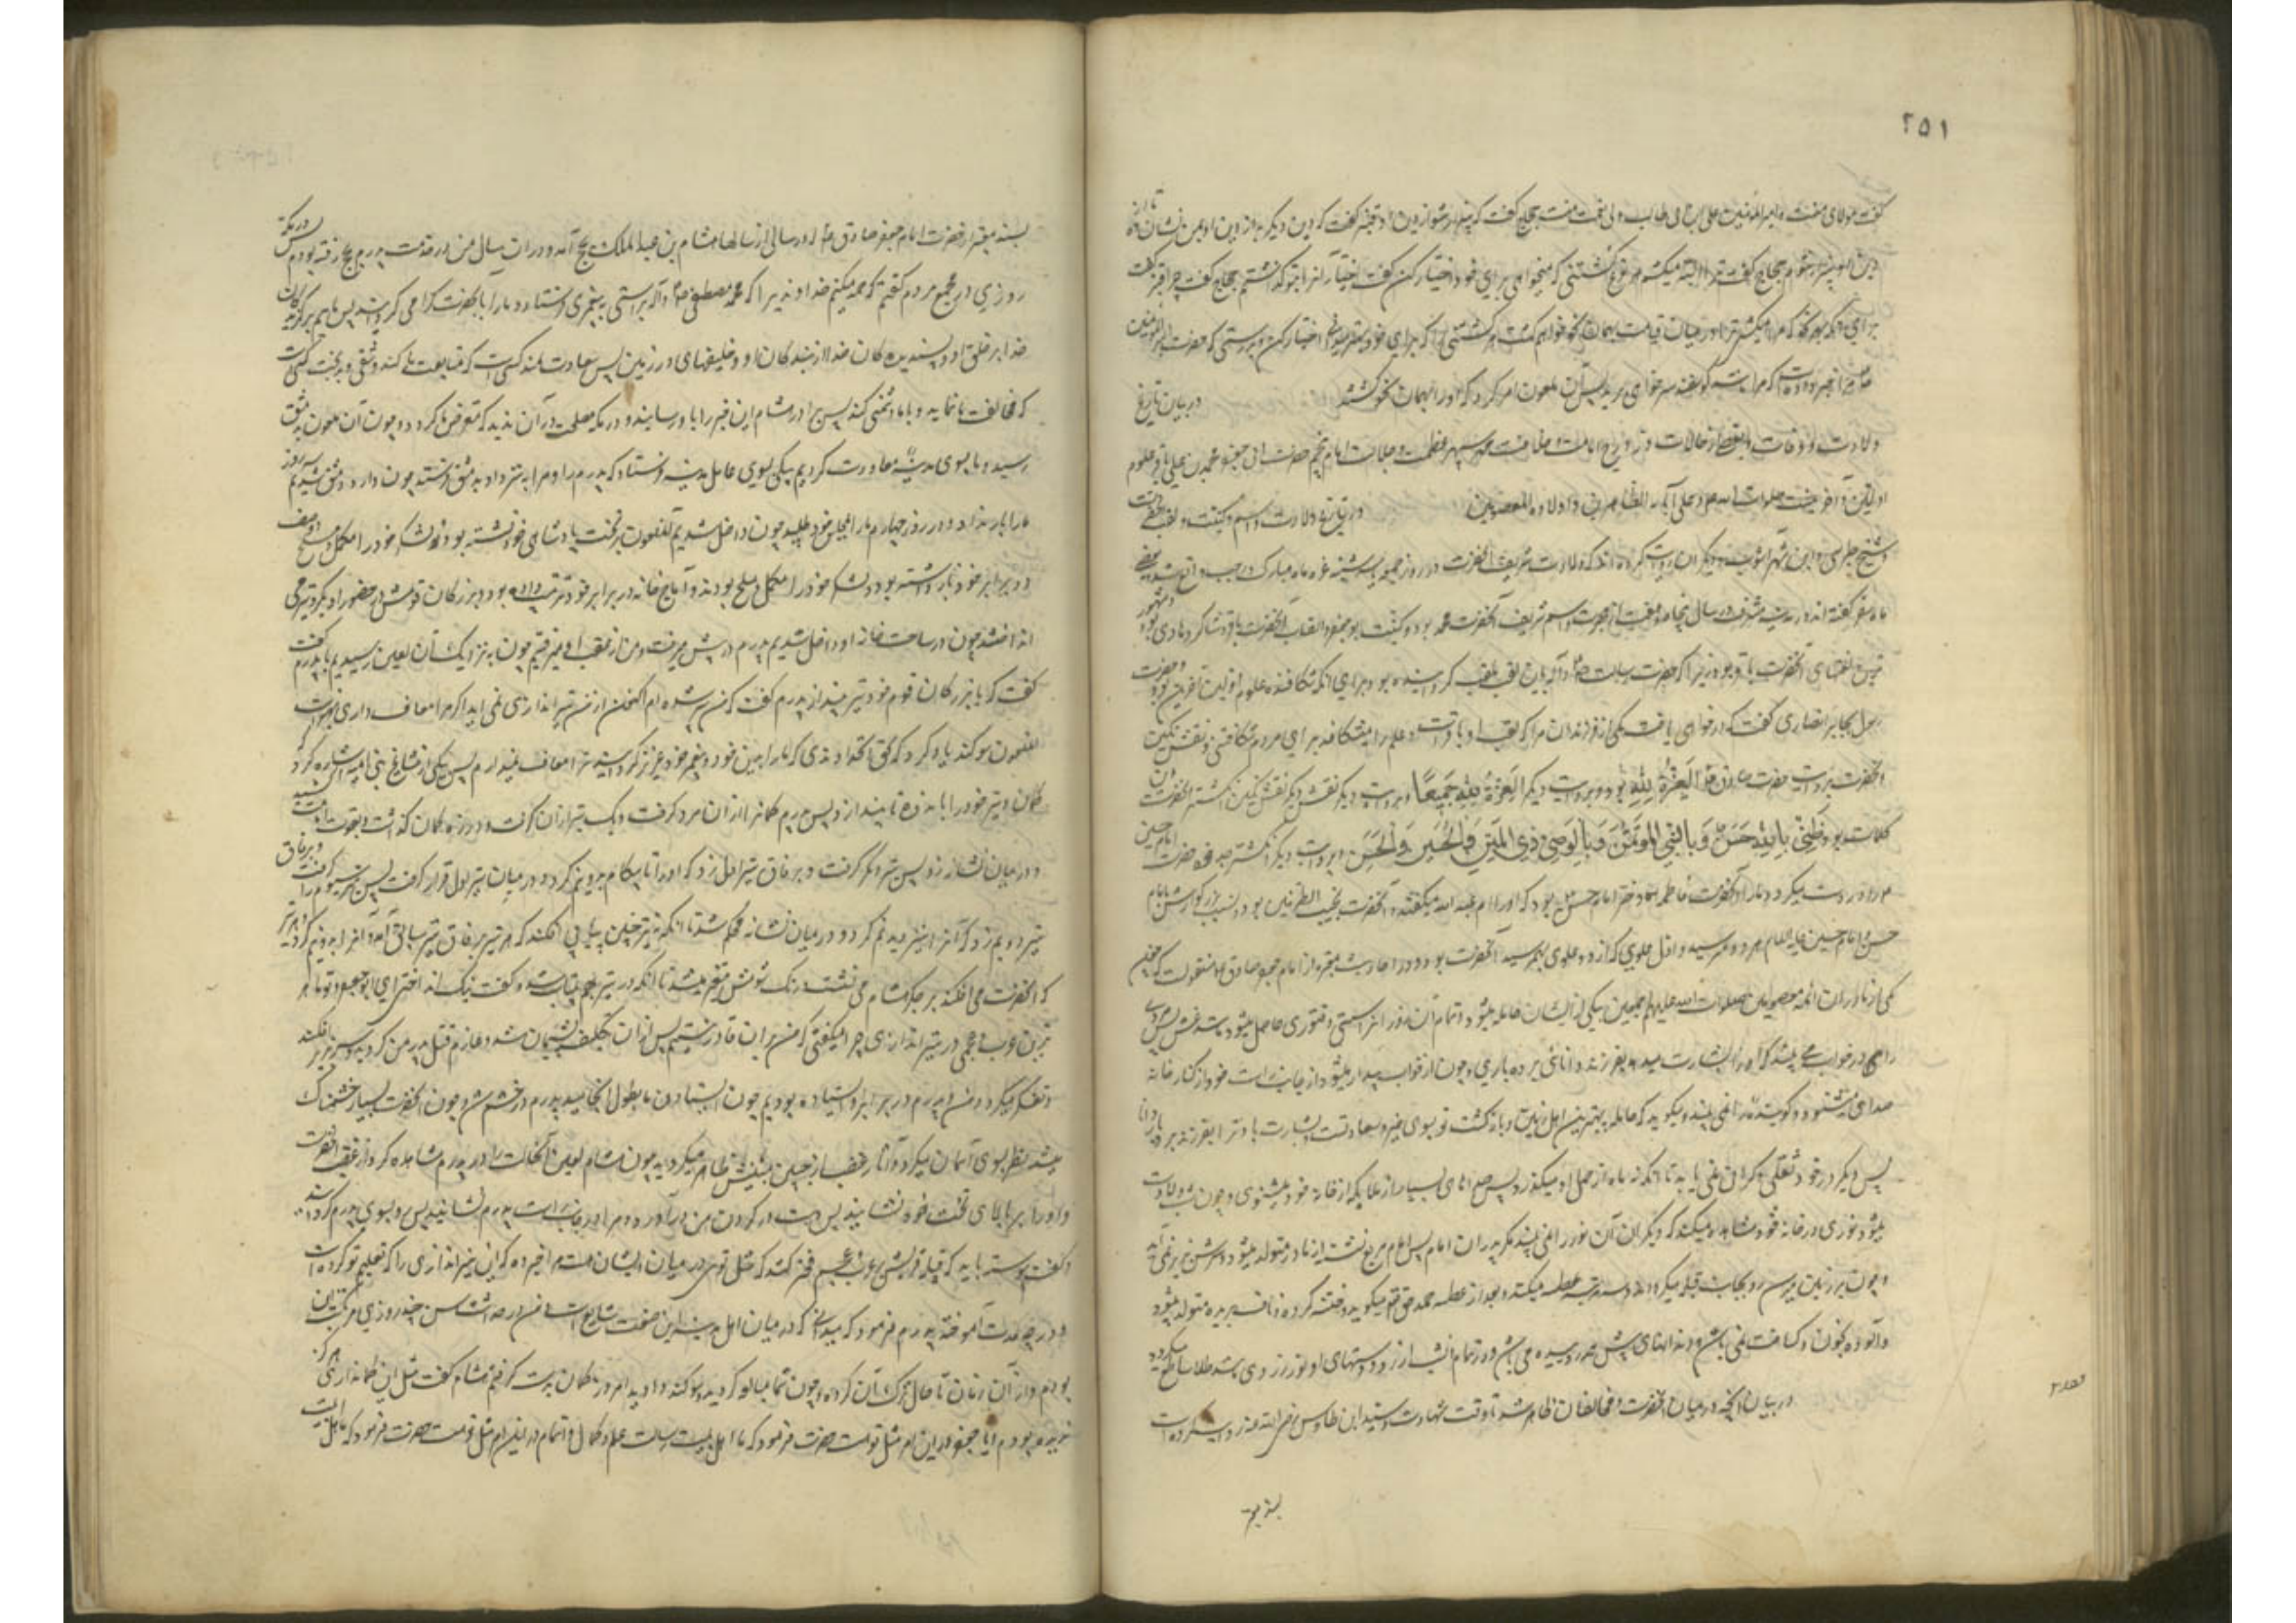 ٢٥١
گفت مولای منست امیرالمؤمنین علی بن ابی طالب ولی نعمت منست حجاج گفت که بیزار شو از دین او قنبر گفت که دین دیگر به از دین او بمن نشان ده تا از
دین او بیزار شوم حجاج گفت ترا البته میکشم هر نوع کشتنی که میخواهی برای خود اختیار کن گفت اختیار آنرا بتو گذاشتم حجاج گفت چرا قنبر گفت
برای آنکه بهر نحو که مرا میکشی ترا در میان قیامت بهمان نحو خواهم کشت هر کشتنی را که برای خود بهتر میدانی اختیار کن و بدرستی که حضرت امیرالمؤمنین
مرا خبر داده است که مرا مانند گوسفند سر خواهی برید پس آن ملعون امر کرد که او را بهمان نحو کشتند در بیان تاریخ
ولادت و وفات و بعضی از حالات امامت و خلافت سپهر عظمت و جلالت امام پنجم حضرت ابی جعفر محمد بن علی باقر علوم
اولین و آخرین صلوات الله علیه و علی آبائه الطاهرین و اولاده المعصومین در تاریخ ولادت و اسم و کنیت و لقب
شیخ طبرسی و ابن شهرآشوب و دیگران روایت کرده اند که ولادت شریف آنحضرت در روز جمعه یا سه شنبه غره ماه مبارک رجب واقع شد و بعضی
ماه صفر گفته اند در مدینه مشرفه در سال پنجاه و هفت از هجرت و اسم شریف آنحضرت محمد بود و کنیت ابو جعفر و القاب آنحضرت باقر و شاکر و هادی بود و مشهور
ترین لقبهای آنحضرت باقر بود زیرا که حضرت رسالت ص و آله باین لقب ملقب گردانیده بود برای آنکه شکافنده علوم اولین و آخرین بود و حضرت
رسول بجابر انصاری گفت که در خواهی یافت یکی از فرزندان مرا که لقب او باقر است و علم را میشکافد برای مردم شکافتنی و نقش نگین
آنحضرت بروایت حضرت صادق العزة لله بود و بروایت دیگر العزة لله جمیعا و بروایت دیگر نقش دیگر نقش نگین انگشتر آنحضرت این
کلمات بود ظنی بالله حسن و بالنبی المؤتمن و بالوصی ذی المنن و بالحسین و الحسن و بروایت دیگر انگشتر جد خود حضرت امام حسین
را در دست میکرد و مادر آنحضرت فاطمه دختر امام حسن بود که او را ام عبدالله میگفتند و آنحضرت نجیب الطرفین بود و نسب بزرگوارش بامام
حسن و امام حسین علیه السلام هر دو میرسید و اول علوی که از دو علوی بهم رسید آنحضرت بود و در احادیث معتبره از امام جعفر صادق ع منقولست که چون
یکی از مادران ائمه معصومین صلوات الله علیهم اجمعین بیکی از ایشان حامله میشود در تمام آن روز او را سستی و فتوری حاصل میشود مانند غش پس مردی
را در خواب می بیند که او را بشارت میدهد بفرزند دانای بردباری و چون از خواب بیدار میشود از جانب راست خود از کنار خانه
صدای میشنود و گوینده را نمی بیند و میگوید که حامله ببهترین اهل زمین و بازگشت تو بسوی خیر و سعادتست و بشارت باد ترا بفرزند بردبار دانا
پس دیگر در خود ثقلی و گرانی نمی یابد تا آنکه نه ماه از حمل او میگذرد پس صدای بسیار از ملایکه از خانه خود میشنود و چون شب ولادت
میشود نوری در خانه خود مشاهده میکند که دیگران آن نور را نمی بینند مگر پدر آن امام پس امام مربع نشسته از مادر متولد میشود و سرش بزیر نمی آید
و چون بر زمین میرسد رو بجانب قبله میگرداند و سه مرتبه عطسه میکند و بعد از عطسه حمد حق تعالی میگوید و ختنه کرده و ناف بریده متولد میشود
و آلوده بخون و کثافت نمی باشد و دندانهای پیش همه روییده می باشد و در تمام شب از رو و دستهای او نور زردی مانند طلا ساطع میگردد
در بیان آنچه در میان آنحضرت و مخالفان ظاهر شد تا وقت شهادت و سید ابن طاوس رضی الله عنه روایت کرده است
بسند معتبر
بسند معتبر از حضرت امام جعفر صادق ع که در سالی از سالها هشام بن عبد الملک بحج آمد و در آن سال من در خدمت پدرم بحج رفته بودم پس در مکه
روزی در مجمع مردم گفتم که حمد میکنم خداوندی را که محمد مصطفی ص و آله براستی به پیغمبری فرستاد و ما را بآنحضرت گرامی گردانید پس مائیم برگزیدگان
خدا بر خلق او و پسندیدگان خدا از بندگان او و خلیفهای در زمین پس سعادتمند کسی است که متابعت ما کند و شقی و بدبخت کسی است
که مخالفت ما نماید و با ما دشمنی کند پس برادر هشام این خبر را باو رسانید و در مکه مصلحت در آن ندید که متعرض ما گردد و چون آن ملعون بدمشق
رسید و ما بسوی مدینه معاودت کردیم پیکی بسوی عامل مدینه فرستاد که پدرم را و مرا بنزد او بدمشق فرستند چون وارد دمشق شدیم سه روز
ما را بار نداد و در روز چهارم ما را بمجلس خود طلبید چون داخل شدیم آن ملعون بر تخت پادشاهی خود نشسته بود و لشکر خود را مکمل و مسلح دو صف
در برابر خود بازداشته بود و آماج خانه در برابر خود ترتیب داده بود و بزرگان قومش در حضور او بگرو تیر می
انداختند چون در ساحت خانه او داخل شدیم پدرم در پیش میرفت و من از عقب او میرفتم چون بنزدیک آن لعین رسیدیم با پدرم گفت
که با بزرگان قوم خود تیر بینداز پدرم گفت که من پیر شده ام اکنون از من تیراندازی نمی آید اگر مرا معاف داری بهتر است
آن ملعون سوگند یاد کرد که بحق آنخداوندی که ما را بدین خود و پیغمبر خود عزیز گردانیده ترا معاف نمیدارم پس بیکی از مشایخ بنی امیه اشاره کرد
که کمان و تیر خود را باو بده تا بیندازد پس پدرم کمان را از آن مرد گرفت و یک تیر از آن گرفت و در زه کمان گذاشت و بقوت امامت کشید
و در میان نشانه زد پس تیر دیگر گرفت و بر فاق تیر اول زد که او را تا پیکان بدو نیم کرد و در میان تیر اول قرار گرفت پس تیر سیوم را گرفت و بر فاق
تیر دویم زد که آنرا نیز بدو نیم کرد و در میان نشانه محکم شد تا آنکه نه تیر چنین پیاپی افکند که هر تیر بر فاق تیر سابق آمد و آنرا بدو نیم کرد و هر تیر
که آنحضرت می افکند بر جگر هشام می نشست و رنگ شومش متغیر میشد تا آنکه در تیر نهم بیتاب شد و گفت نیک انداختی ای ابو جعفر و تو ماهر
ترین عرب و عجمی در تیراندازی چرا میگفتی که من بر آن قادر نیستم پس از آن تکلیف پشیمان شد و عازم قتل پدر من گردید و سر بزیر افکند
و تفکر میکرد و من و پدرم در برابر او ایستاده بودیم چون ایستادن ما بطول انجامید پدرم در خشم شد و چون آنحضرت بسیار خشمناک
میشد نظر بسوی آسمان میکرد و آثار غضب از جبین مبینش ظاهر میگردید چون هشام لعین آنحالت را در پدرم مشاهده کرد از غضب آنحضرت
و او را بر بالای تخت خود نشانید پس دست در گردن من درآورده و مرا در جانب راست پدرم نشانید پس رو بسوی پدرم گردانید
و گفت پیوسته باید که قبیله قریش بر عرب و عجم فخر کنند که مثل توئی در میان ایشان هست مرا خبر ده که این تیراندازی را که تعلیم تو کرده است
و در چه مدت آموخته پدرم فرمود که میدانی که در میان اهل مدینه این صنعت شایع است و من در حداثت سن چند روزی مرتکب این
بودم و از آن زمان تا حال ترک آن کرده ام چون مبالغه کردید و سوگند دادید امروز کمان بدست گرفتم هشام گفت مثل این کمانداری هرگز
ندیده بودم آیا جعفر در این امر مثل توست حضرت فرمود که ما اهل بیت رسالت علم و کمال و اتمام دین